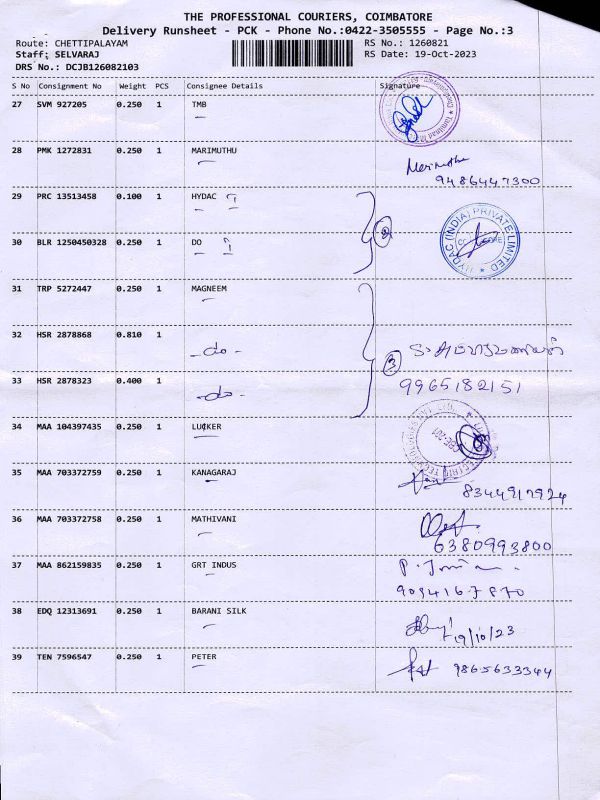 THE PROFESSIONAL COURIERS, COIMBATORE
Delivery Runsheet - PCK - Phone No.:0422-3505555 - Page No.:3
Route: CHETTIPALAYAM RS No.: 1260821
Staff: SELVARAJ RS Date: 19-Oct-2023
DRS No.: DCJB126082103
S No Consignment No Weight PCS Consignee Details Signature
27 SVM 927205 0.250 1 TMB
28 PMK 1272831 0.250 1 MARIMUTHU Marimuthu
9486447300
29 PRC 13513458 0.100 1 HYDAC
HYDAC (INDIA) PRIVATE LIMITED
30 BLR 1250450328 0.250 1 DO
31 TRP 5272447 0.250 1 MAGNEEM
32 HSR 2878868 0.810 1 -do-
3
33 HSR 2878323 0.400 1 -do- 9965182151
34 MAA 104397435 0.250 1 LUCKER
35 MAA 703372759 0.250 1 KANAGARAJ
8344917924
36 MAA 703372758 0.250 1 MATHIVANI
6380993800
37 MAA 862159835 0.250 1 GRT INDUS
9094167870
38 EDQ 12313691 0.250 1 BARANI SILK
19/10/23
39 TEN 7596547 0.250 1 PETER 9865633344